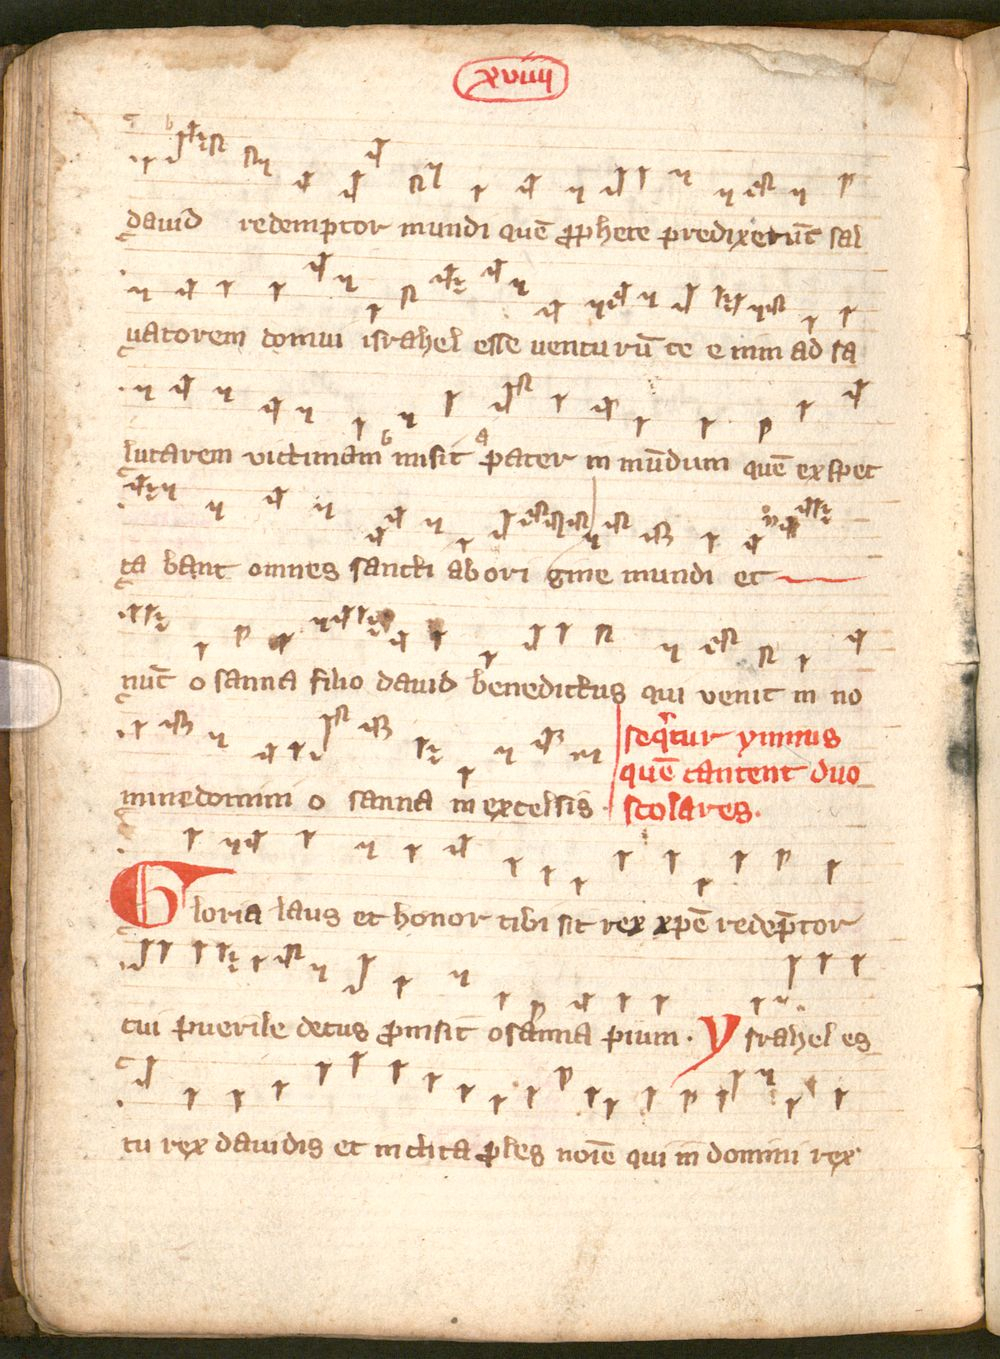 xviiii
dauid redemptor mundi quē ꝓphete predixerūt sal
uatorem domui israhel esse venturū te enim ad sa
lutarem victimam misit pater in mūdum quē exspec
ta bant omnes sancti ab ori gine mundi et
nūc o sanna filio dauid benedictus qui venit in no
mine domini o sanna in excelsis.
seqͣtur ymnus
quē cantent duo
scolares.
Gloria laus et honor tibi sit rex xpē redēptor
cui puerile decus ꝓmsit osānna pium. Ysrahel es
tu rex dauidis et inclita ꝓles noīe qui in domini rex